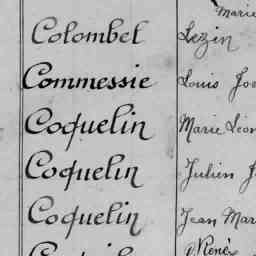 Marie
Colombel Lezin
Commessie Louis Jo
Coquelin Marie Leon
Coquelin Julien J
Coquelin Jean Mar
René